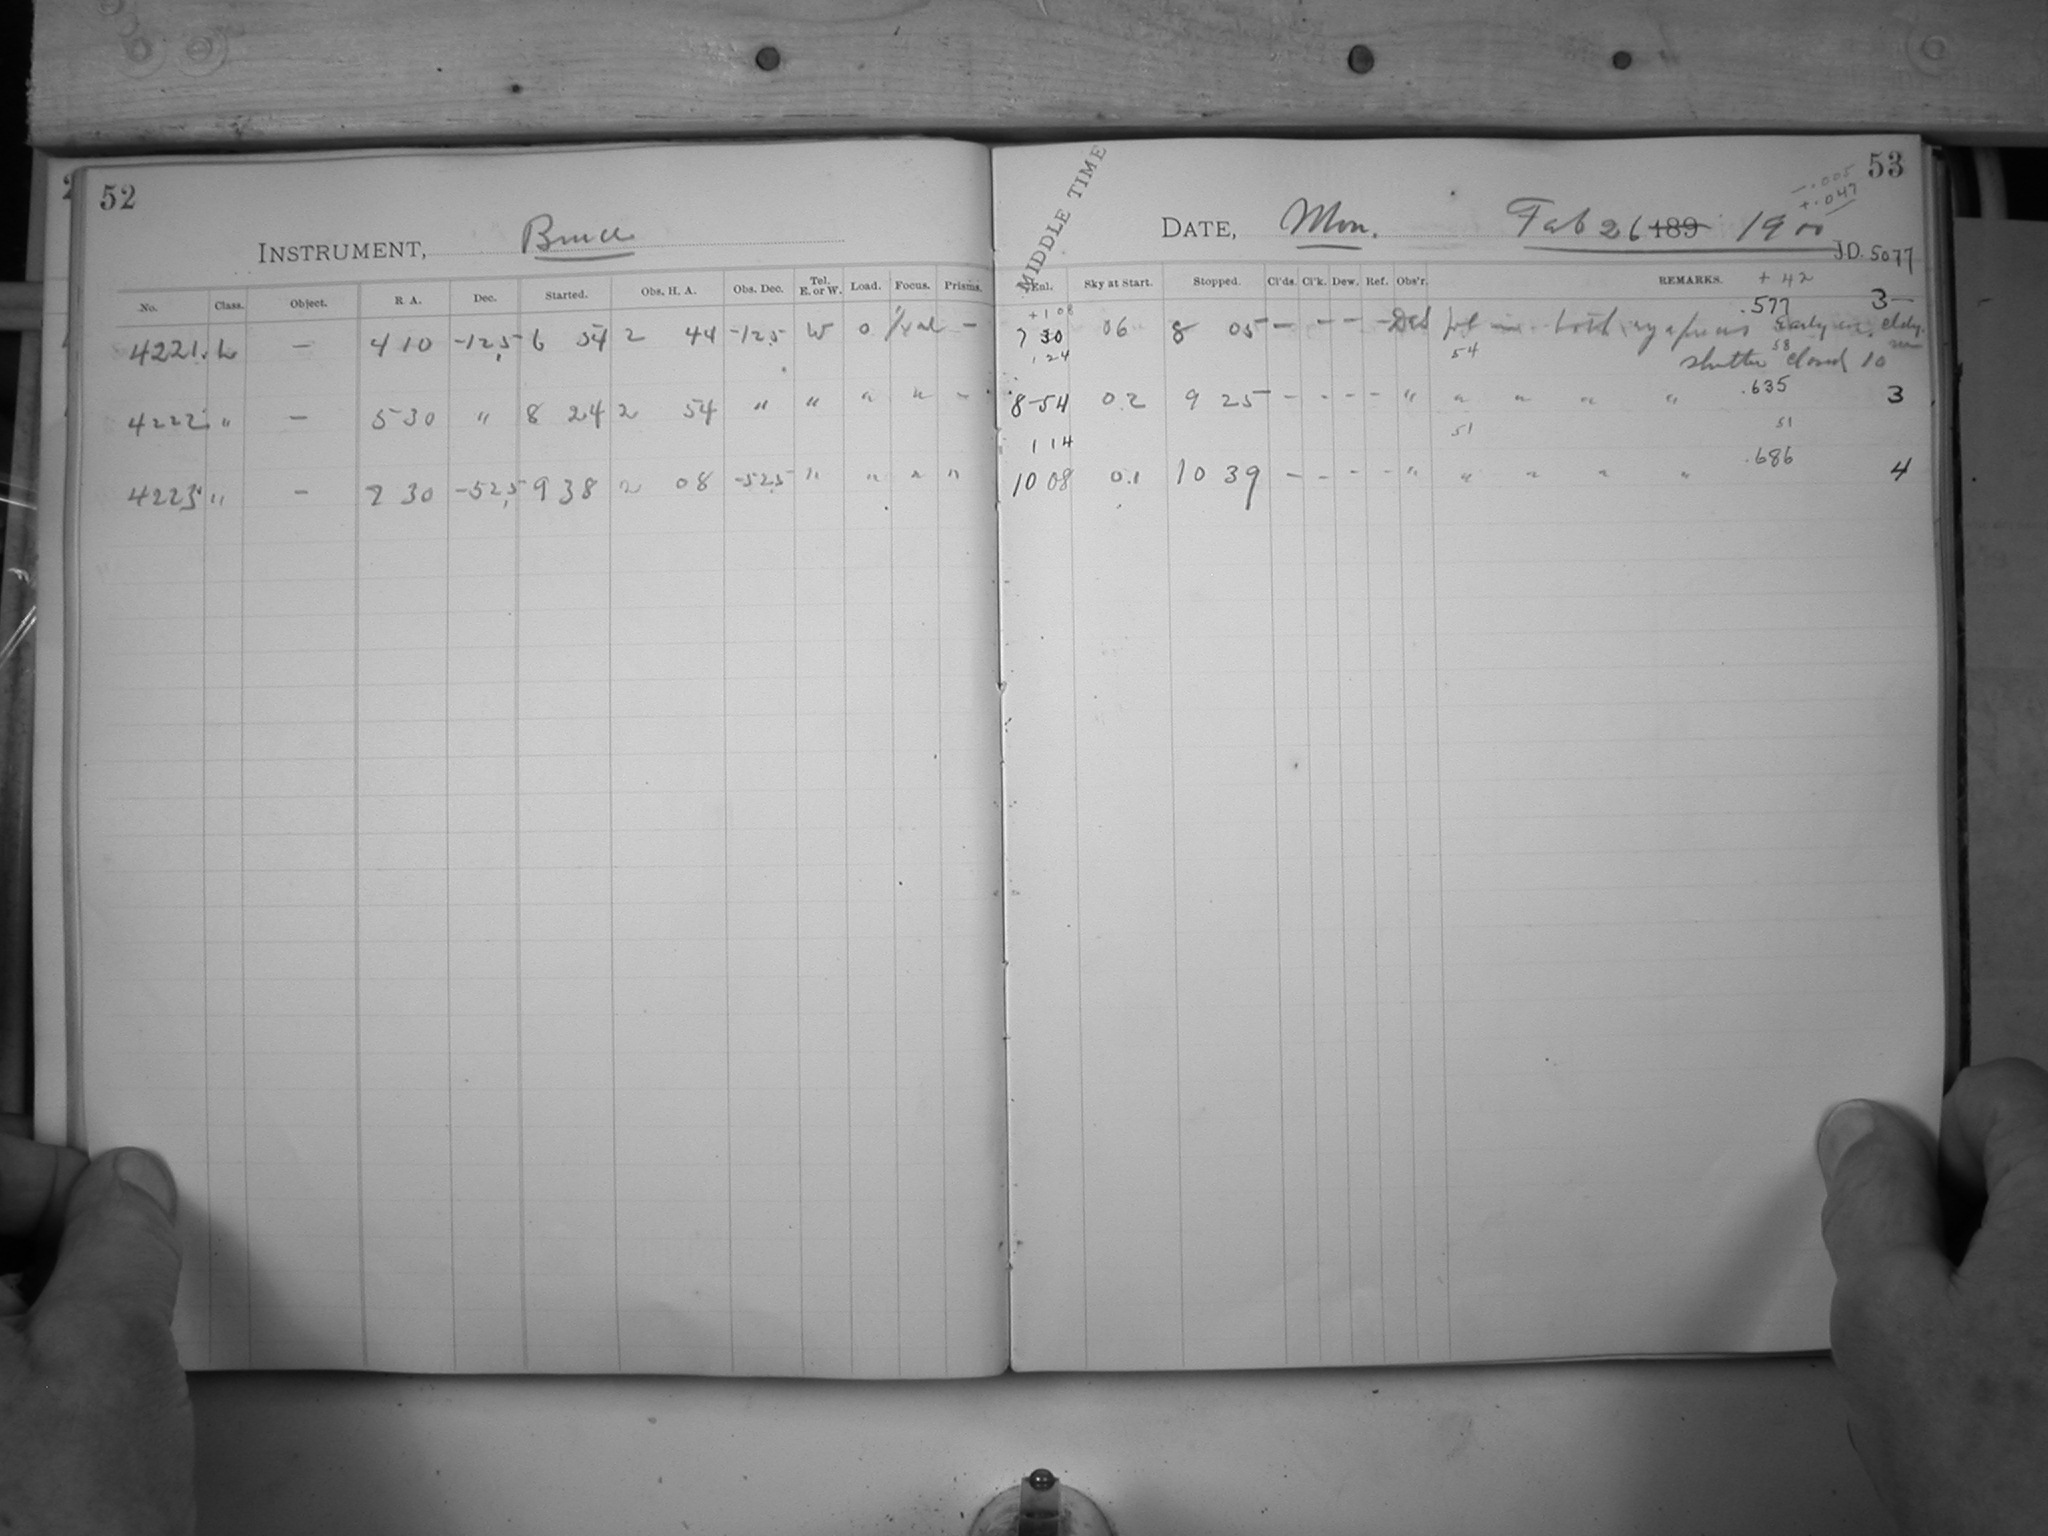 52
INSTRUMENT, Bruce
No. Class. Object. R. A. Dec. Started. Obs. H. A. Obs. Dec. Tel. E. or W. Load. Focus. Prisms.
4221. L — 4 10 -12,5 6 54 2 44 -12,5 W 0 —
4222 " — 5 30 " 8 24 2 54 " " " " -
4223 " — 7 30 -52,5 9 38 2 08 -52,5 " " " "
53
-.005
+.047
MIDDLE TIME
DATE, Mon. Feb 26 189 1900
J.D. 5077
Enl. Sky at Start. Stopped. Cl'ds. Cl'k. Dew. Ref. Obs'r. REMARKS. + 42
+1 08 .577 3-
7 30 06 8 05 — — — — both Early ev. cldy.
1 24 54 58 shutter closed 10 m
.635
8 54 0.2 9 25 - - - - " " " " " 3
1 14 51 51
.686
10 08 0.1 10 39 - - - - " " " " " 4